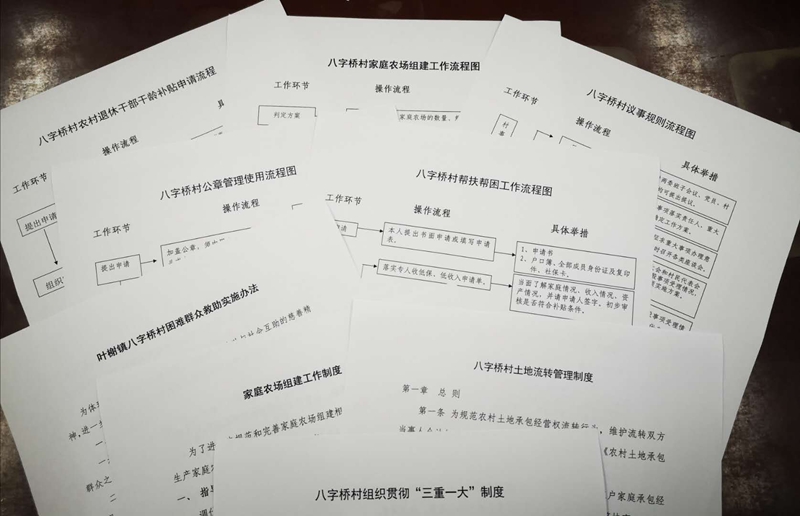 八字桥村农村退休干部干龄补贴申请流程
操作流程
工作环节
提出申请
组织
八字桥村家庭农场组建工作流程图
工作环节
操作流程
判定方案
家庭农场的数量、
八字桥村议事规则流程图
工作环节
操作流程
具体举措
村
事
八字桥村公章管理使用流程图
工作环节
操作流程
提出申请
加盖公章,
八字桥村帮扶帮困工作流程图
工作环节
操作流程
具体举措
本人提出书面申请或填写申请
表。
1、申请书
2、户口簿、全部成员身份证及复印
件、社保卡。
落实专人收低保、低收入申请单。
当面了解家庭情况、收入情况、资
产情况,并请申请人签字。初步审
核是否符合补贴条件。
叶榭镇八字桥村困难群众救助实施办法
为体
神,进一步
群众之
家庭农场组建工作制度
为了进
规范和完善家庭农场组建相
生产家庭农
一、指导
八字桥村土地流转管理制度
第一章 总 则
第一条 为规范农村土地承包经营权流转行为,维护流转双方
《农村土地承包
户家庭承包经
八字桥村组织贯彻“三重一大”制度